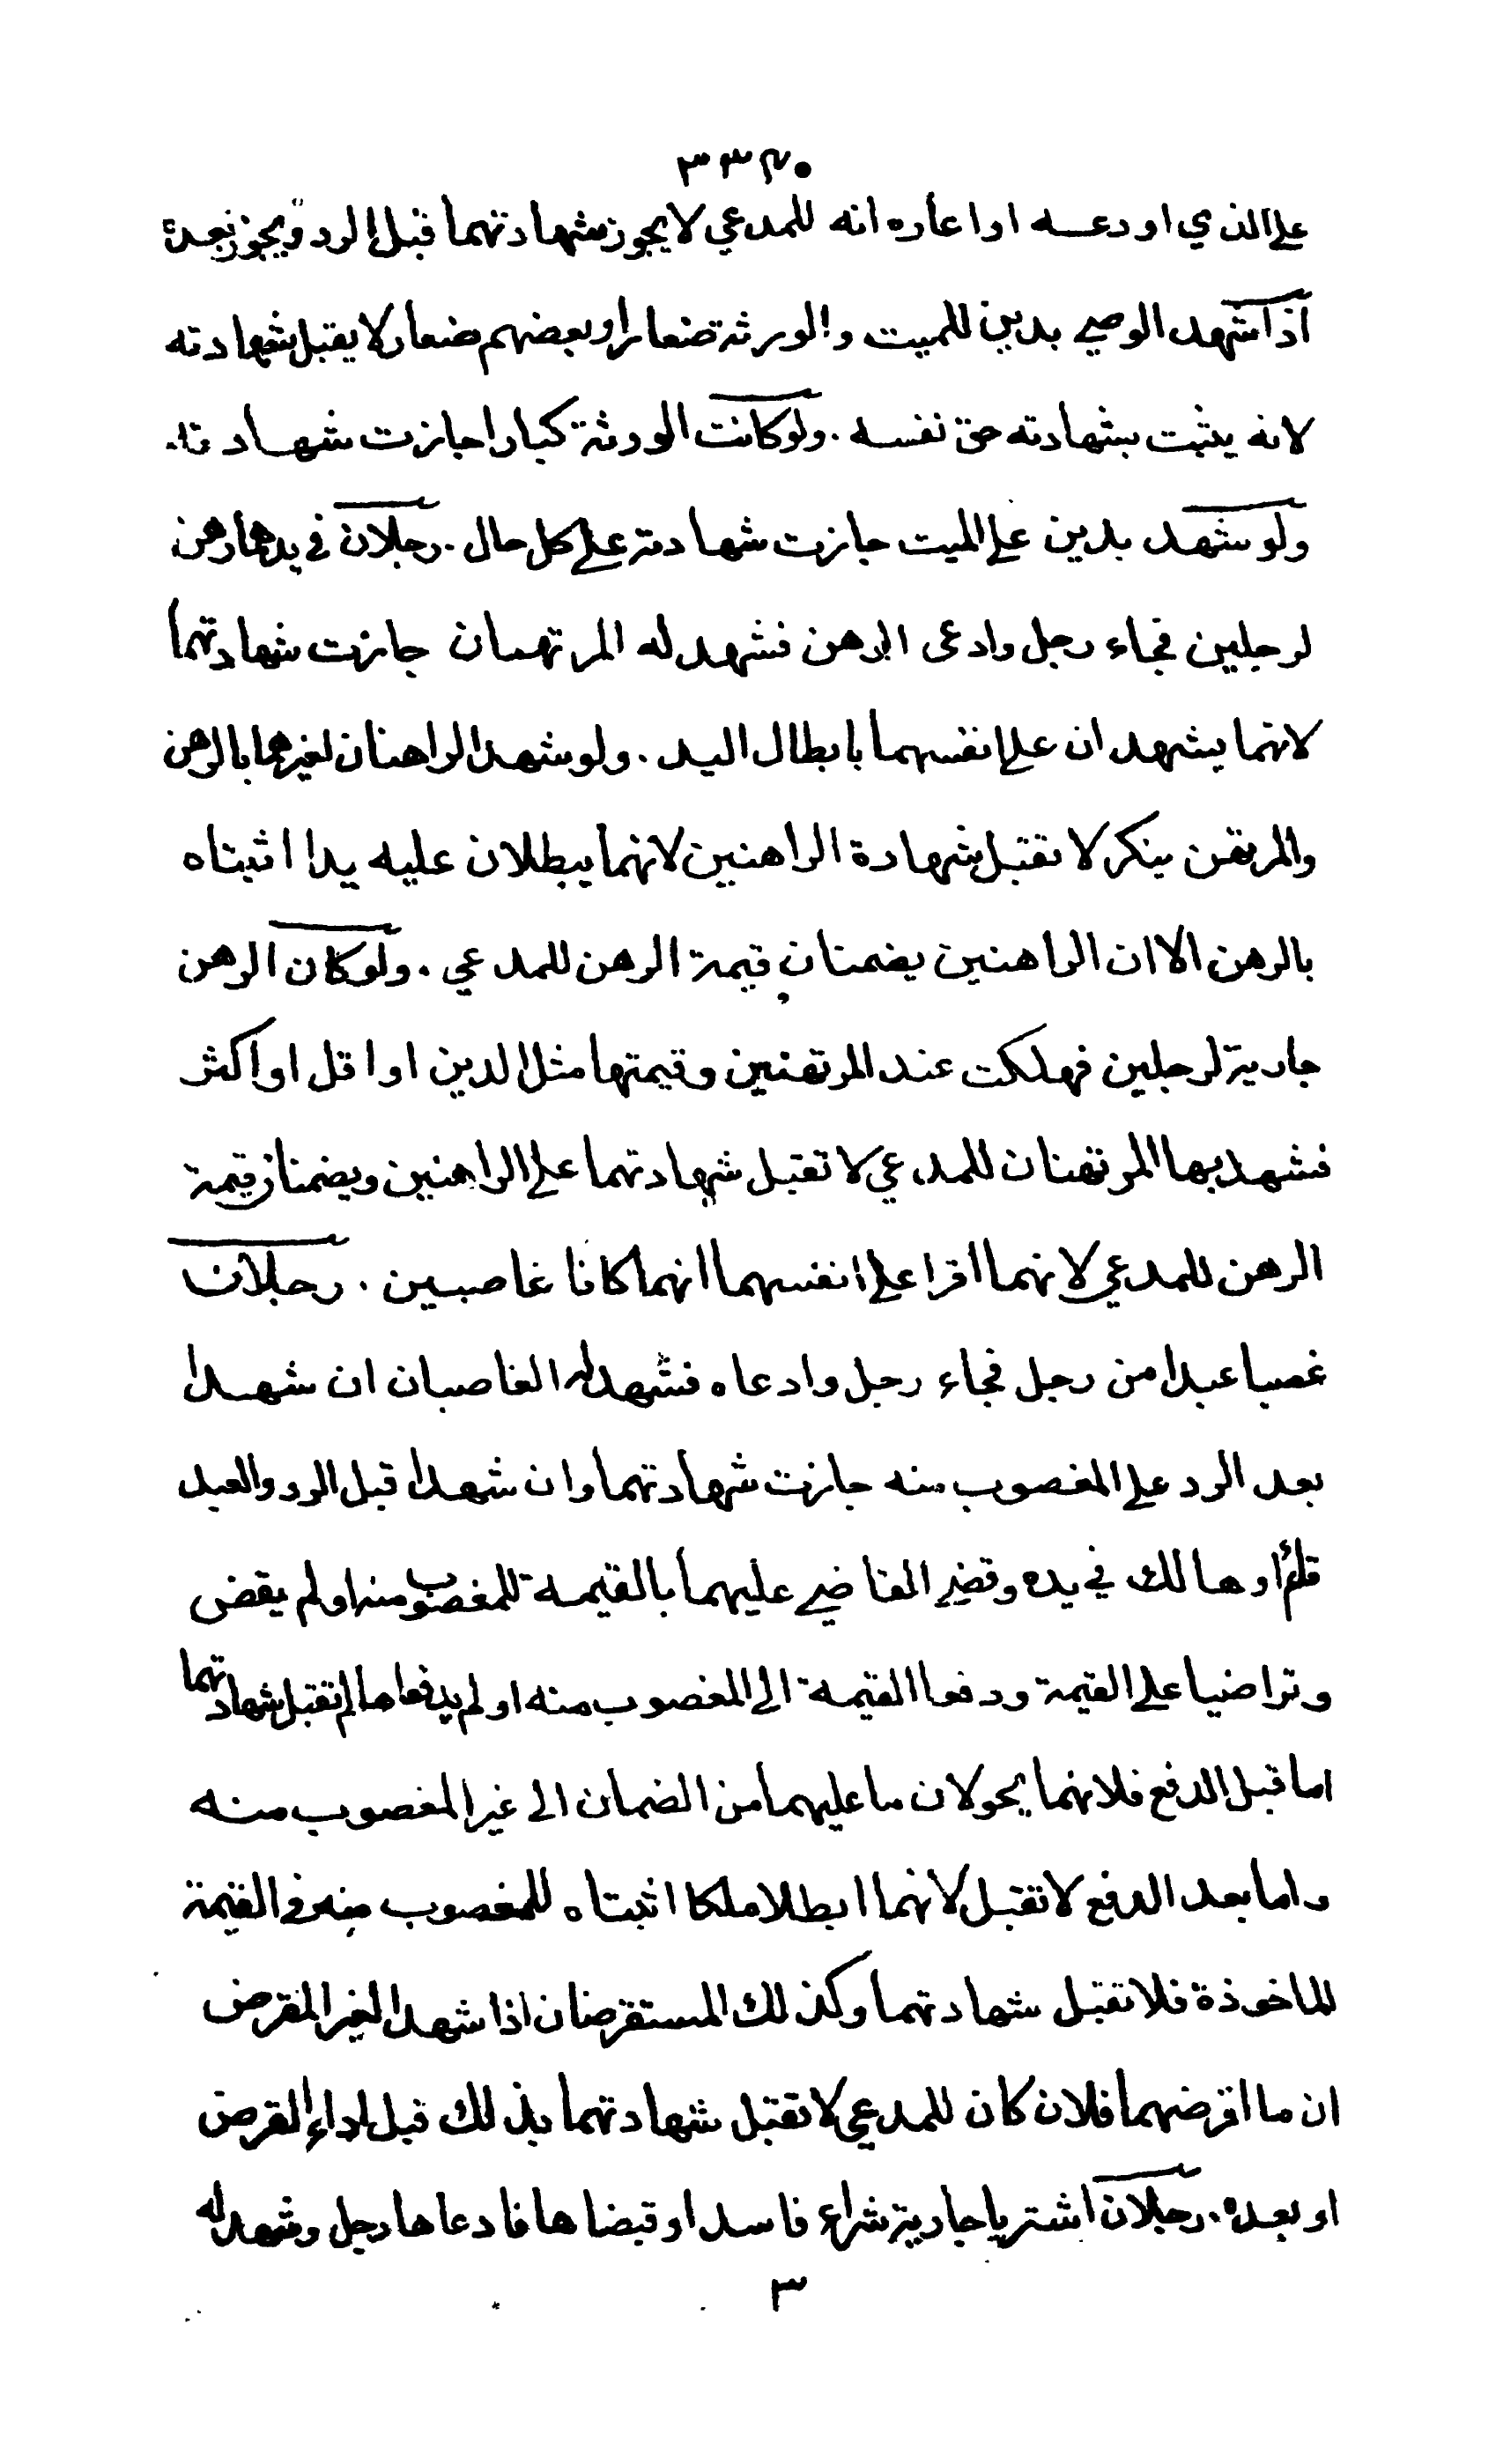 ٣٣٢٠
على الذي اودعه او اعاره انه للمدعي لا يجوز شهادتهما قبل الرد ويجوز بعده
اذا شهد الوصي بدين للميت والورثة ضعار او بعضهم ضعار لا يقبل شهادته
لانه يثبت بشهادته حق نفسه . ولو كانت الورثة كبارا جازت شهادته
ولو شهد بدين على الميت جازت شهادته على كل حال . رجلان في يدهما رهن
لرجلين فجاء رجل وادعى الرهن فشهد له المرتهنان جازت شهادتهما
لانهما يشهدان على انفسهما بابطال اليد . ولو شهد الراهنان لغيرهما بالرهن
والمرتهن ينكر لا تقبل شهادة الراهنين لانهما يبطلان عليه يدا اثبتاه
بالرهن الا ان الراهنين يضمنان قيمة الرهن للمدعي . ولو كان الرهن
جارية لرجلين فهلكت عند المرتهنين وقيمتها مثل الدين او اقل او اكثر
فشهد بها المرتهنان للمدعي لا تقبل شهادتهما على الراهنين ويضمنان قيمة
الرهن للمدعي لانهما اقرا على انفسهما انهما كانا غاصبين . رجلان
غصبا عبدا من رجل فجاء رجل وادعاه فشهد له الغاصبان ان شهدا
بعد الرد على المغصوب منه جازت شهادتهما وان شهدا قبل الرد والعبد
قائم او هالك في يده وقضى القاضي عليهما بالقيمة للمغصوب منه او لم يقض
وتراضيا على القيمة ودفعا القيمة الى المغصوب منه او لم يدفعاها لم تقبل شهادتهما
اما قبل الدفع فلانهما يحولان ما عليهما من الضمان الى غير المغصوب منه
واما بعد الدفع لا تقبل لانهما ابطلا ملكا اثبتاه للمغصوب منه في القيمة
الماخوذة فلا تقبل شهادتهما وكذلك المستقرضان اذا شهدا لغير المقرض
ان ما اقرضهما فلان كان للمدعي لا تقبل شهادتهما بذلك قبل اداء القرض
او بعده . رجلان اشتريا جارية شراء فاسدا وقبضاها فادعاها رجل وشهد له
٣